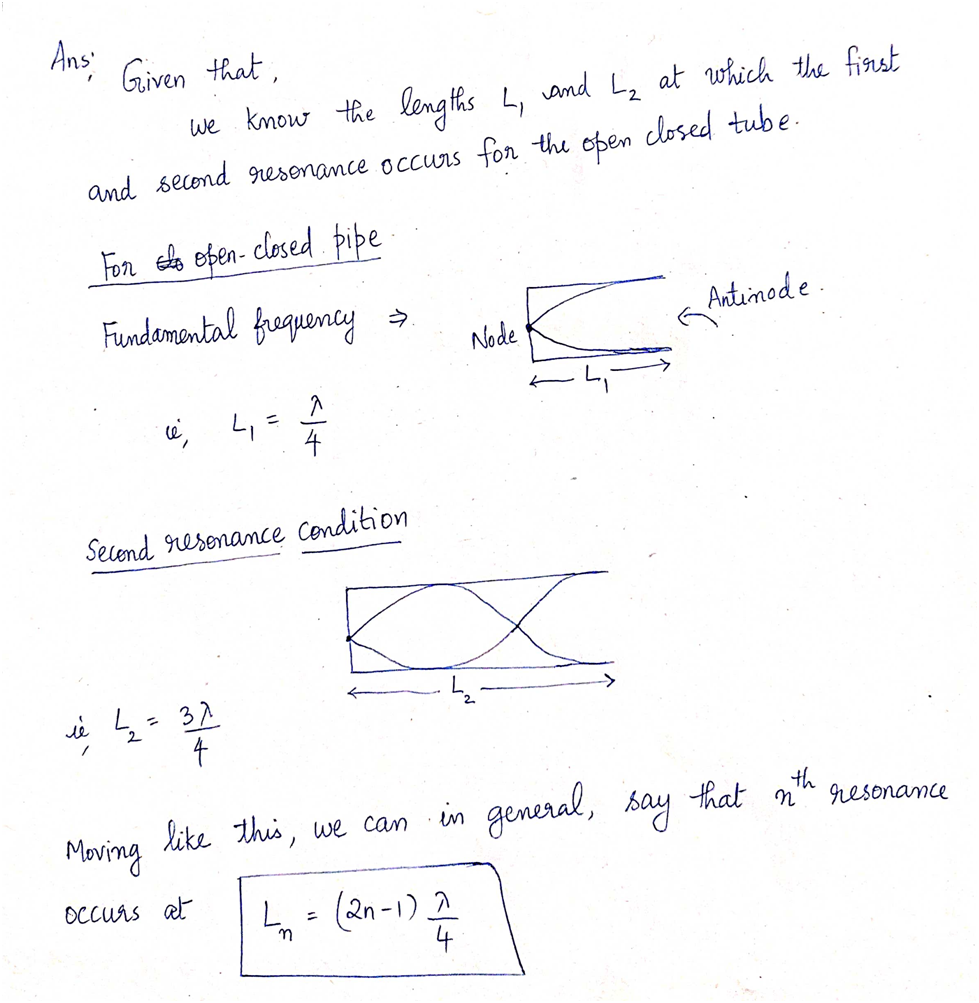 Ans;
Given that,
we know the lengths L₁ and L₂ at which the first
and second resonance occurs for the open closed tube.
For open-closed pipe
Fundamental frequency ⇒
Node
Antinode.
L₁
ie, L₁ = λ/4
Second resonance condition
L₂
ie, L₂ = 3λ/4
Moving like this, we can in general, say that nᵗʰ resonance
occurs at
Lₙ = (2n-1) λ/4